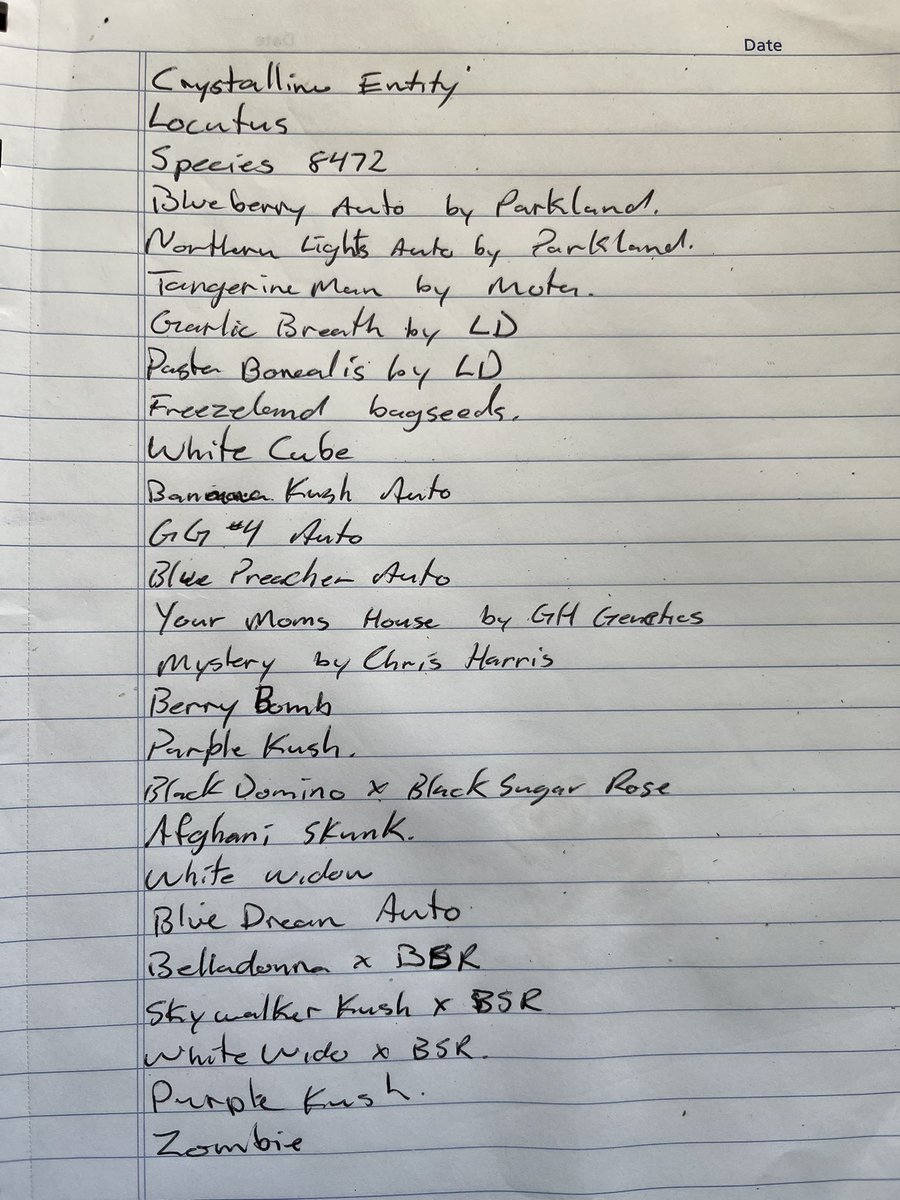 Date
Crystalline Entity
Locutus
Species 8472
Blueberry Auto by Parkland.
Northern Lights Auto by Parkland.
Tangerine Man by Mota.
Garlic Breath by LD
Pasta Borealis by LD
Freezeland bagseeds.
White Cube
Banana Kush Auto
GG #4 Auto
Blue Preacher Auto
Your Moms House by GH Genetics
Mystery by Chris Harris
Berry Bomb
Purple Kush.
Black Domino x Black Sugar Rose
Afghani Skunk.
White Widow
Blue Dream Auto
Belladonna x BSR
Skywalker Kush x BSR
White Wido x BSR.
Purple Kush.
Zombie